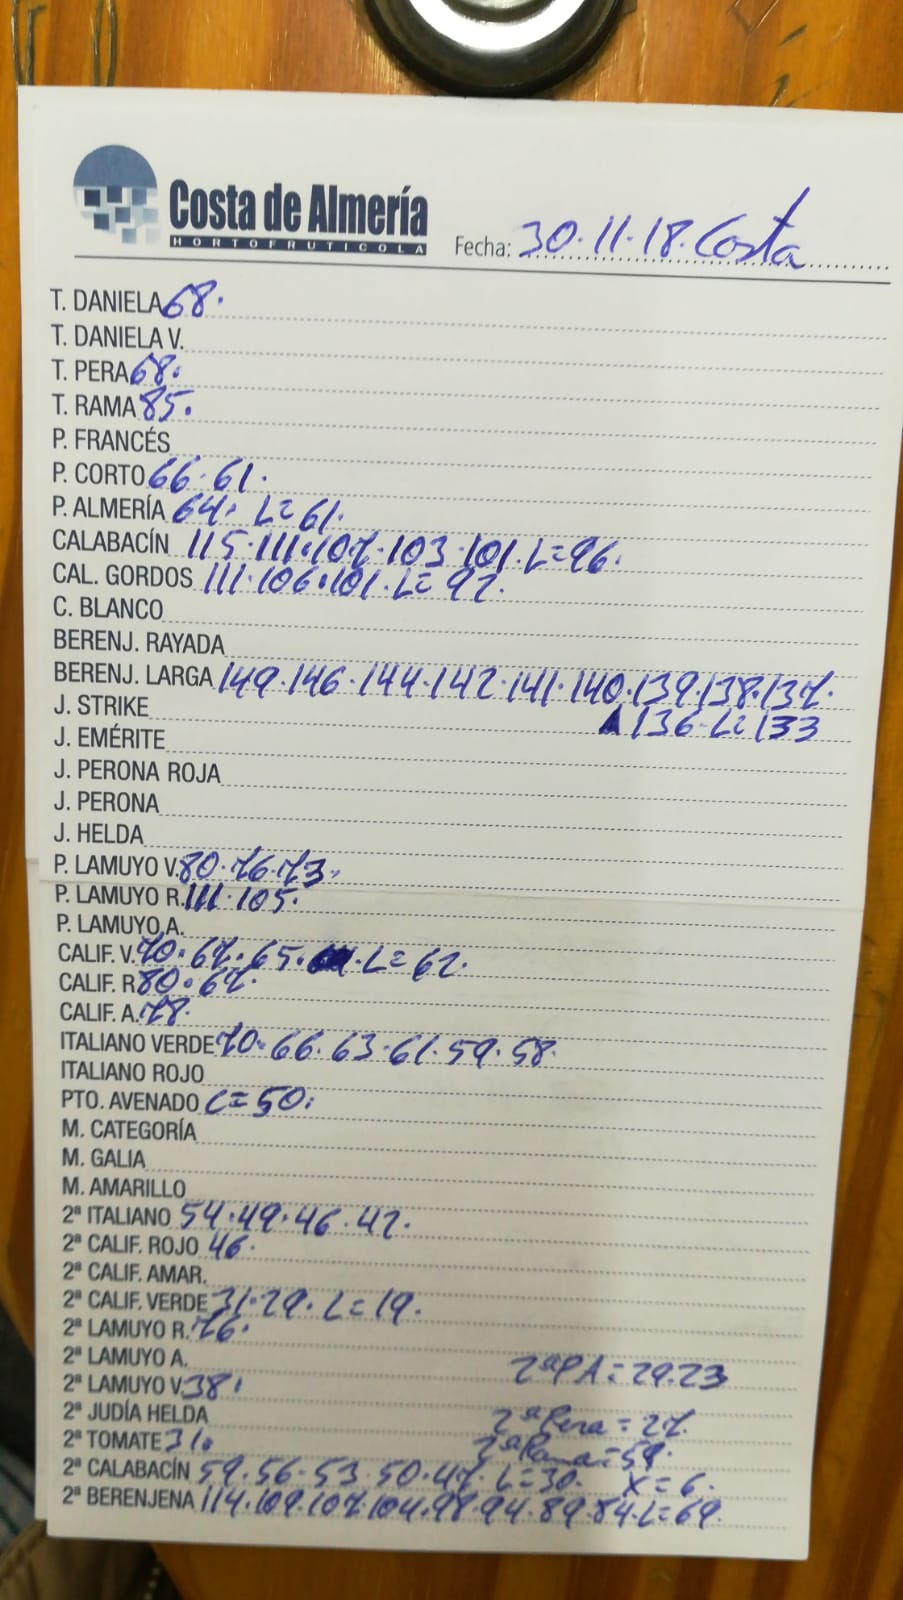 Costa de Almería
HORTOFRUTICOLA
Fecha: 30.11.18. Costa
T. DANIELA 68.
T. DANIELA V.
T. PERA 68.
T. RAMA 85.
P. FRANCÉS
P. CORTO 66.61.
P. ALMERÍA 64. L=61.
CALABACÍN 115.111.107.103.101.L=96.
CAL. GORDOS 111.106.101.L=92.
C. BLANCO
BERENJ. RAYADA
BERENJ. LARGA 149.146.144.142.141.140.139.138.137.
136.L=133
J. STRIKE
J. EMÉRITE
J. PERONA ROJA
J. PERONA
J. HELDA
P. LAMUYO V. 80.76.73.
P. LAMUYO R. 111.105.
P. LAMUYO A.
CALIF. V. 70.67.65. L=62.
CALIF. R 80.67.
CALIF. A. 78.
ITALIANO VERDE 70.66.63.61.59.58.
ITALIANO ROJO
PTO. AVENADO L=50.
M. CATEGORÍA
M. GALIA
M. AMARILLO
2ª ITALIANO 54.49.46.42.
2ª CALIF. ROJO 46.
2ª CALIF. AMAR.
2ª CALIF. VERDE 31.29.L=19.
2ª LAMUYO R. 76.
2ª LAMUYO A.
2ª PA=29.23
2ª LAMUYO V. 38.
2ª JUDÍA HELDA
2ª Pera=27.
2ª TOMATE 31.
2ª Rama=59.
2ª CALABACÍN 59.56.53.50.47.L=30. X=6.
2ª BERENJENA 114.109.107.104.98.94.89.84.L=69.